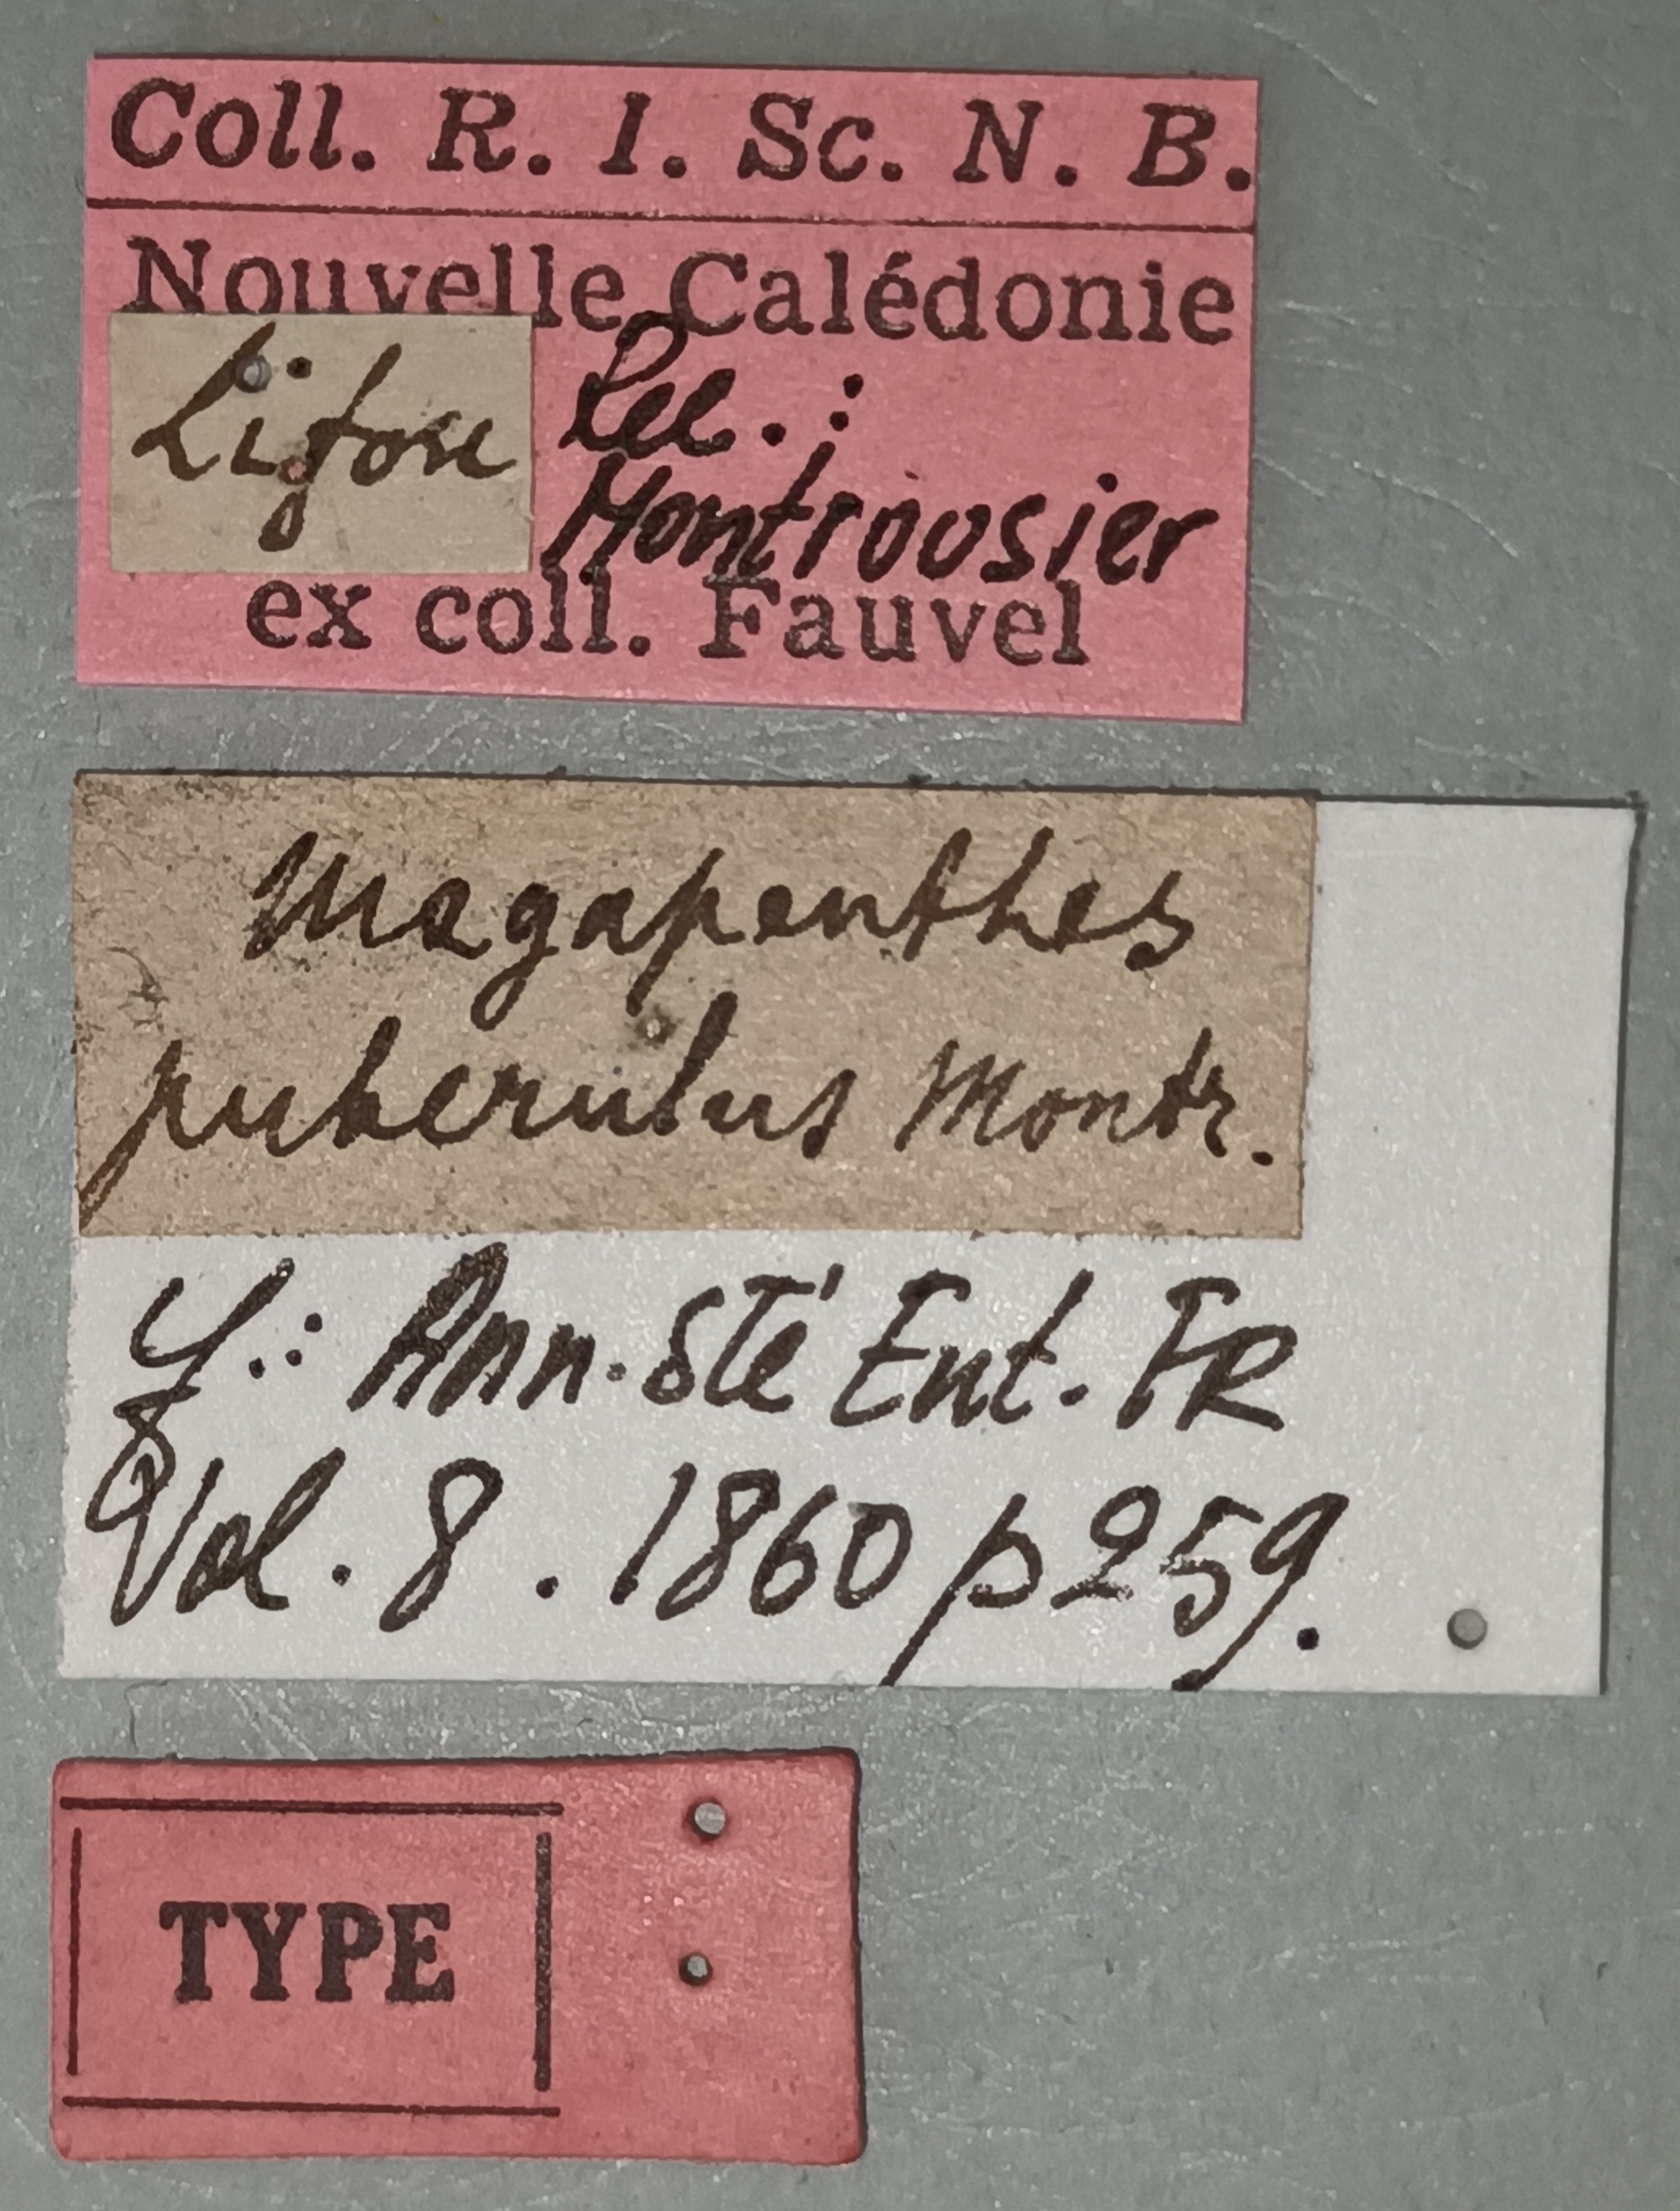 Coll. R. I. Sc. N. B.
Nouvelle Calédonie
Lifou
Rec.:
Montrousier
ex coll. Fauvel
Megapenthes
puberulus Montr.
cf.: Ann. Sté Ent. FR
Vol. 8. 1860 p 259.
TYPE